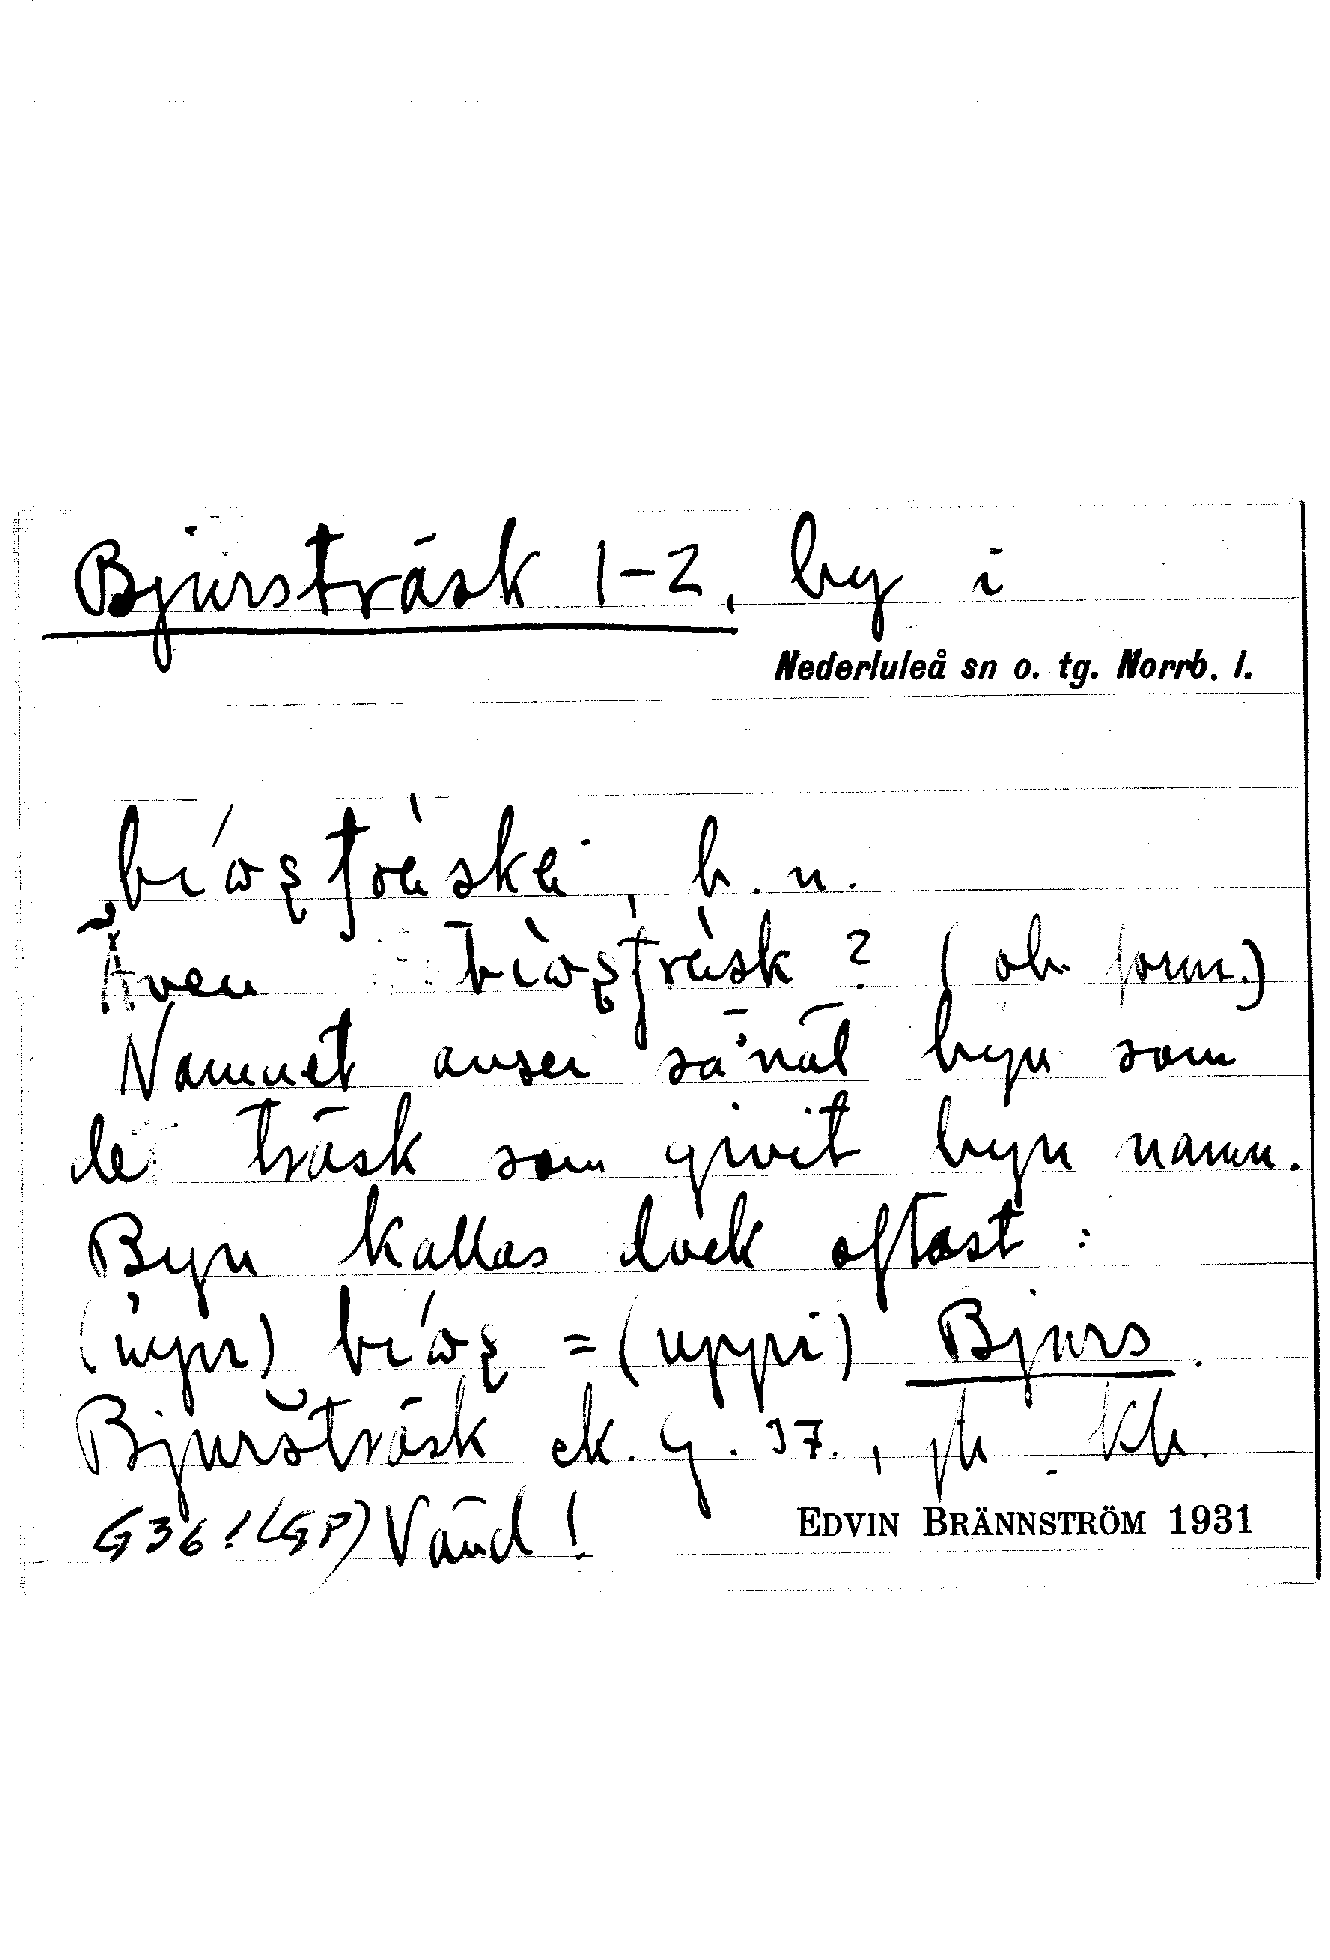 Bjursträsk 1-2, by i
Nederluleå sn o. tg. Norrb. l.
b. n.
Även ? (ob. form.)
Namnet avser såväl byn som
de träsk som givit byn namn.
Byn kallas dock oftast:
= (uppi) Bjurs.
Bjursträsk ek. G. 37.,
G36! (GP) Vänd!
EDVIN BRÄNNSTRÖM 1931